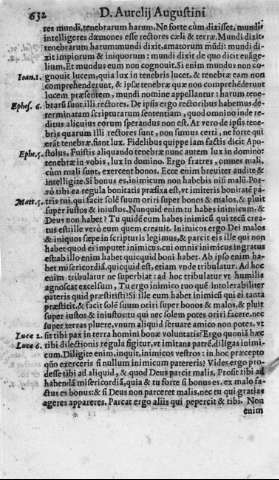 632 D. Aurelij Augustini
res mundi, tenebrarum harum. Ne forte cùm dixisset, mundi
intelligeres dæmones esse rectores cæli & terræ. Mundi dixit
tenebrarum harum mundi dixit, amatorum mũdi: mundi di-
xit impiorum & iniquorum: mundi dixit de quo dicit euãge-
lium, Et mundus eum non cognouit. Si enim mundus non co-
Ioan.1. gnouit lucem, quia lux in tenebris lucet, & tenebræ eam non
comprehenderunt, & ipsæ tenebræ quæ non comprehenderunt
lucem præsentem, mundi nomine appellantur: harum tene-
Ephes. 6. brarũ sunt illi rectores. De ipsis ergo rectoribus habemus de-
terminatam scripturarum sententiam, quod omnino inde re-
ditus aliquius eorum sperandus non est. At verò de ipsis tene-
bris quarum illi rectores sunt, non sumus certi, ne forte qui
erãt tenebræ, sint lux. Fidelibus quippe iam factis dicit Apo-
Ephe.5. stolus, Fuistis aliquando tenebræ: nunc autem lux in domino:
tenebræ in vobis, lux in domino. Ergo fratres, omnes mali,
cùm mali sunt, exercent bonos. Ecce enim breuiter audite &
intelligite. Si bonus es, inimicum non habebis nisi malũ. Por-
rò tibi ea regula bonitatis præfixa est, vt imiteris bonitatē pa-
Matt.5. tris tui, qui facit solē suum oriri super bonos & malos, & pluit
super iustos & iniustos. Nunquid enim tu habes inimicum, &
Deus non habet? Tu quidē eum habes inimicũ qui tecũ crea-
tus est: ille verò eum quem creauit. Inimicos ergo Dei malos
& iniquos sæpe in scripturis legimus, & parcit eis ille qui non
habet quod ei imputet inimicus: cui omnis inimicus ingratus
est: ab illo enim habet quicquid boni habet. Ab ipso enim ha-
bet misericordiã, quicquid est, etiam vnde tribulatur. Ad hoc
enim tribulatur ne superbiat: ad hoc tribulatur vt humilis
agnoscat excelsum, Tu ergo inimico tuo quē intolerabiliter
pateris quid præstitisti? Si ille cum habet inimicũ qui ei tanta
præstitit, & facit solē suum oriri super bonos & malos, & pluit
super iustos & iniustos: tu qui nec solem potes oriri facere, nec
super terras pluere, vnum aliquid seruare amico non potes, vt
Luce 2. sit tibi pax in terra homini bonæ voluntatis? Ergo quoniã hæc
Luce 6. tibi dilectionis regula figitur, vt imitans patrē, diligas inimi-
cum. Diligite enim, inquit, inimicos vestros: in hoc præcepto
quõ exerceris si nullum inimicum patereris? Vides ergo pro-
desse tibi ad aliquid, & quod Deus parcit malis, Prosit tibi ad
habendã misericordiã, quia & tu forte si bonus es, ex malo fa-
ctus es bonus: & si Deus non parceret malis, nec tu qui gratias
ageres appareres. Parcat ergo aliis qui pepercit & tibi. Non
enim